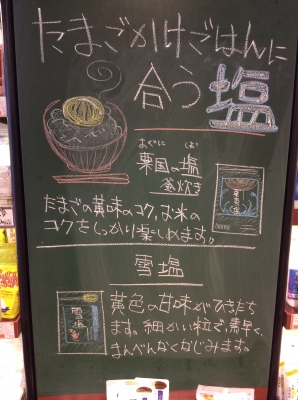 たまごかけごはんに
合う塩
あぐに しお
粟国の塩
釜炊き
たまごの黄味のコク、お米の
コクをしっかり楽しめます。
雪塩
黄色の甘味がひきたち
ます。細かい粒で、素早く、
まんべんなくなじみます。
雪塩